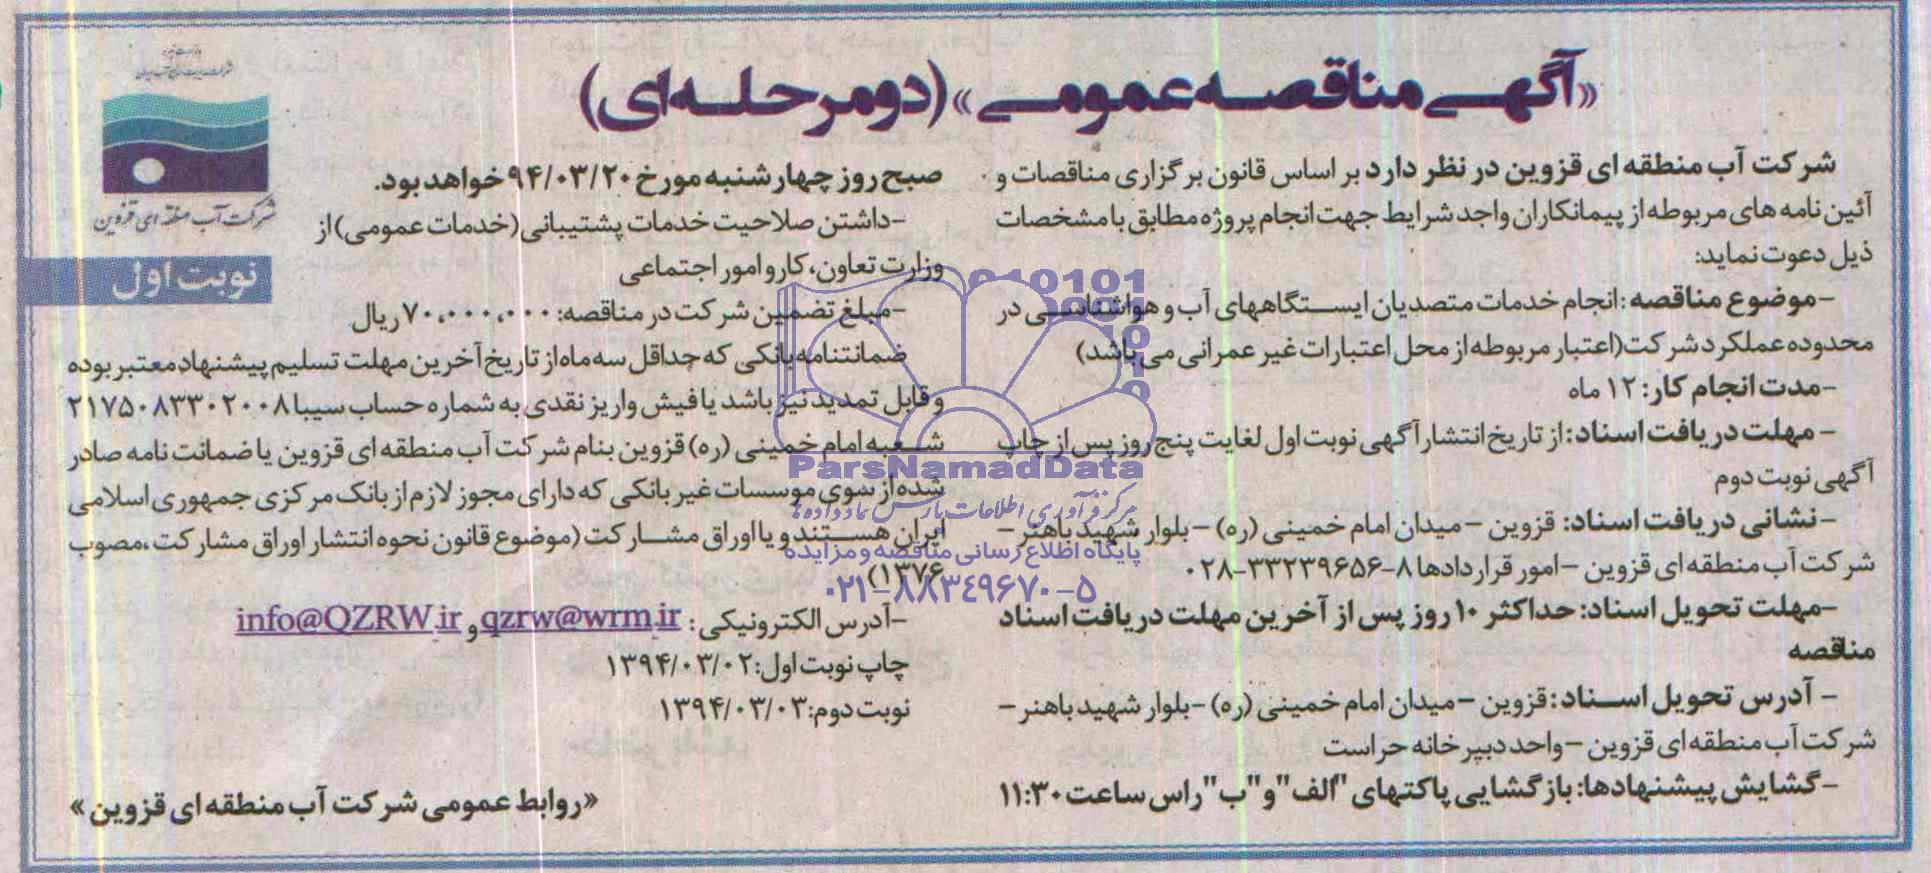 «آگهی مناقصه عمومی» (دو مرحله‌ای)
شرکت آب منطقه ای قزوین
نوبت اول
شرکت آب منطقه ای قزوین در نظر دارد بر اساس قانون برگزاری مناقصات و
آئین نامه های مربوطه از پیمانکاران واجد شرایط جهت انجام پروژه مطابق با مشخصات
ذیل دعوت نماید:
-موضوع مناقصه: انجام خدمات متصدیان ایستگاههای آب و هواشناسی در
محدوده عملکرد شرکت(اعتبار مربوطه از محل اعتبارات غیر عمرانی می باشد)
-مدت انجام کار: ۱۲ ماه
- مهلت دریافت اسناد: از تاریخ انتشار آگهی نوبت اول لغایت پنج روز پس از چاپ
آگهی نوبت دوم
-نشانی دریافت اسناد: قزوین -میدان امام خمینی (ره) -بلوار شهید باهنر -
شرکت آب منطقه ای قزوین -امور قراردادها ۸-۳۳۲۳۹۶۵۶-۰۲۸
-مهلت تحویل اسناد: حداکثر ۱۰ روز پس از آخرین مهلت دریافت اسناد
مناقصه
- آدرس تحویل اسناد: قزوین -میدان امام خمینی (ره) -بلوار شهید باهنر -
شرکت آب منطقه ای قزوین -واحد دبیرخانه حراست
-گشایش پیشنهادها: بازگشایی پاکتهای "الف" و "ب" راس ساعت ۱۱:۳۰
صبح روز چهارشنبه مورخ ۹۴/۰۳/۲۰ خواهد بود.
-داشتن صلاحیت خدمات پشتیبانی(خدمات عمومی) از
وزارت تعاون، کار و امور اجتماعی
-مبلغ تضمین شرکت در مناقصه: ۷۰،۰۰۰،۰۰۰ ریال
ضمانتنامه بانکی که حداقل سه ماه از تاریخ آخرین مهلت تسلیم پیشنهاد معتبر بوده
و قابل تمدید نیز باشد یا فیش واریز نقدی به شماره حساب سیبا ۲۱۷۵۰۸۳۳۰۲۰۰۸
شعبه امام خمینی (ره) قزوین بنام شرکت آب منطقه ای قزوین یا ضمانت نامه صادر
شده از سوی موسسات غیر بانکی که دارای مجوز لازم از بانک مرکزی جمهوری اسلامی
ایران هستند و یا اوراق مشارکت (موضوع قانون نحوه انتشار اوراق مشارکت، مصوب
۱۳۷۶)
-آدرس الکترونیکی: qzrw@wrm.ir و info@QZRW.ir
چاپ نوبت اول: ۱۳۹۴/۰۳/۰۲
نوبت دوم: ۱۳۹۴/۰۳/۰۳
«روابط عمومی شرکت آب منطقه ای قزوین»
ParsNamadData
مرکز فرآوری اطلاعات پارس نماد داده ها
پایگاه اطلاع رسانی مناقصه و مزایده
۰۲۱-۸۸۳۴۹۶۷۰-۵